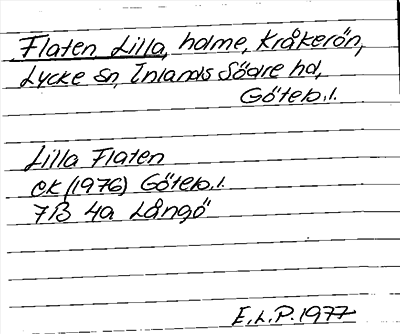 Flaten Lilla, holme, Kråkerön,
Lycke sn, Inlands Södre hd,
Göteb. l.
Lilla Flaten
ek (1976) Göteb. l.
7B 4a Långö
E. L. P. 1977